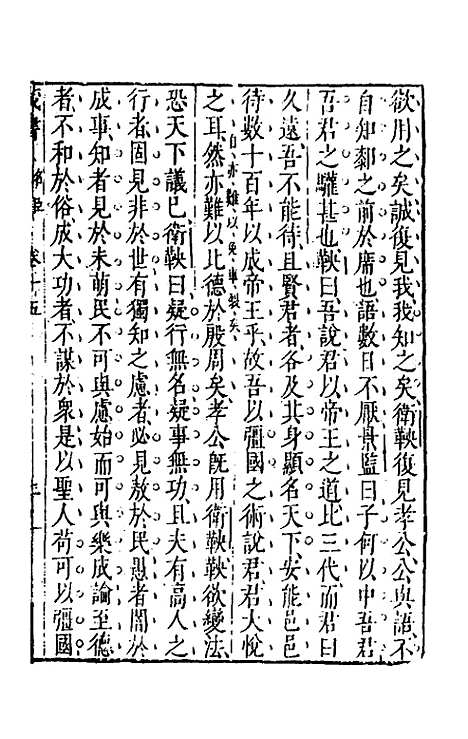 欲用之矣誠復見我我知之矣衛鞅復見孝公公與語不
自知䣛之前於席也語數日不厭景監曰子何以中吾君
吾君之驩甚也鞅曰吾說君以帝王之道比三代而君曰
久遠吾不能待且賢君者各及其身顯名天下安能邑邑
待數十百年以成帝王乎故吾以彊國之術說君君大悅
亦難以免車裂矣
之耳然亦難以比德於殷周矣孝公既用衛鞅鞅欲變法
恐天下議已衛鞅曰疑行無名疑事無功且夫有高人之
行者固見非於世有獨知之慮者必見敖於民愚者闇於
成事知者見於未萌民不可與慮始而可與樂成論至德
者不和於俗成大功者不謀於衆是以聖人苟可以彊國
書 卷十五